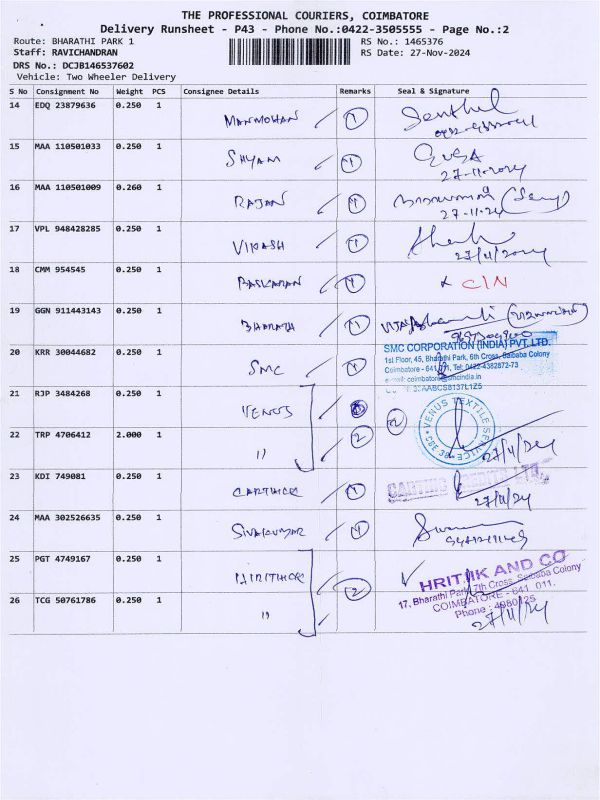 THE PROFESSIONAL COURIERS, COIMBATORE
Delivery Runsheet - P43 - Phone No.:0422-3505555 - Page No.:2
Route: BHARATHI PARK 1 RS No.: 1465376
Staff: RAVICHANDRAN RS Date: 27-Nov-2024
DRS No.: DCJB146537602
Vehicle: Two Wheeler Delivery
S No Consignment No Weight PCS Consignee Details Remarks Seal & Signature
14 EDQ 23879636 0.250 1 MANMOHAN 1 Senthil
15 MAA 110501033 0.250 1 SHYAM 1
27-11-2024
16 MAA 110501009 0.260 1 RAJAN 1
27-11-24
17 VPL 948428285 0.250 1 VIKASH 1
27/11/2024
18 CMM 954545 0.250 1 BASKARAN 1 CIN
19 GGN 911443143 0.250 1 BHARATH 1
20 KRR 30044682 0.250 1 SMC 1
SMC CORPORATION (INDIA) PVT. LTD.
1st Floor, 45, Bharathi Park, 6th Cross, Saibaba Colony
Coimbatore - 641 011, Tel: 0422-4382872-73
21 RJP 3484268 0.250 1 VENUS 2
VENUS TEXTILE SERVICE
22 TRP 4706412 2.000 1 " 2
27/11/24
23 KDI 749081 0.250 1 CARTHICK 1
27/11/24
24 MAA 302526635 0.250 1 SIVAKUMAR 1
25 PGT 4749167 0.250 1 HRITHICK 2
HRITHIK AND CO
17, Bharathi Park, 7th Cross, Saibaba Colony
COIMBATORE - 641 011.
26 TCG 50761786 0.250 1 "
27/11/24